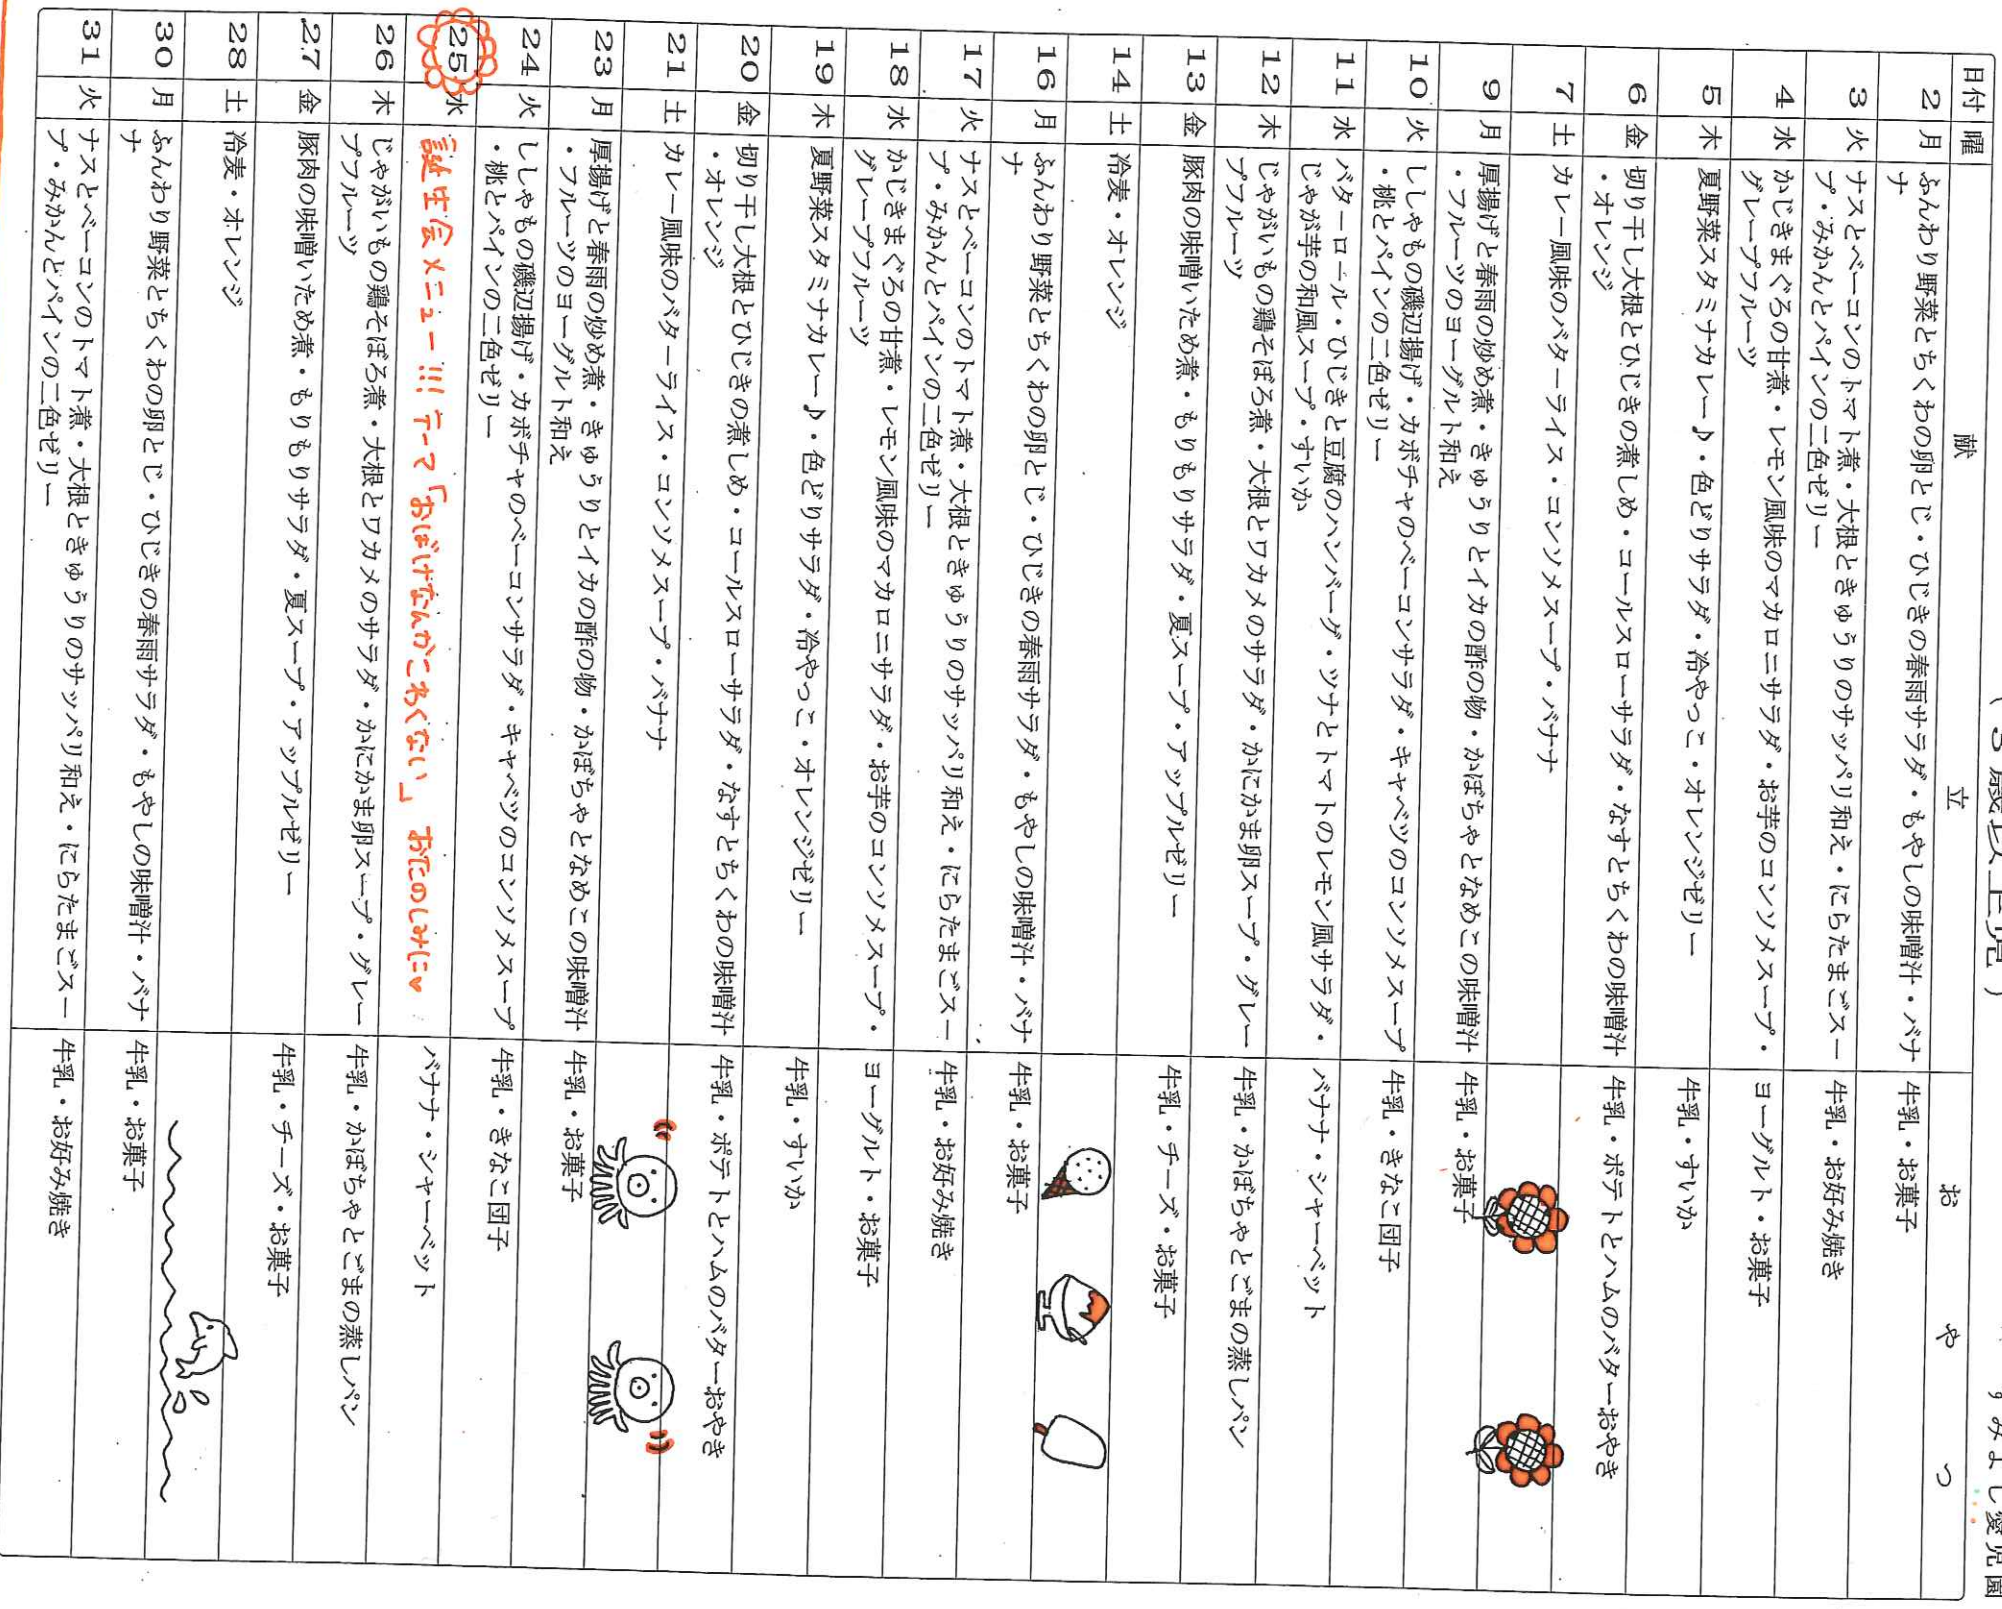 （３歳以上児）
すみよし愛児園
日付 曜 献 立 お や つ
2 月 ふんわり野菜とちくわの卵とじ・ひじきの春雨サラダ・もやしの味噌汁・バナ 牛乳・お菓子
ナ
3 火 ナスとベーコンのトマト煮・大根ときゅうりのサッパリ和え・にらたまごスー 牛乳・お好み焼き
プ・みかんとパインの二色ゼリー
4 水 かじきまぐろの甘煮・レモン風味のマカロニサラダ・お芋のコンソメスープ・ ヨーグルト・お菓子
グレープフルーツ
5 木 夏野菜スタミナカレー♪・色どりサラダ・冷やっこ・オレンジゼリー 牛乳・すいか
6 金 切り干し大根とひじきの煮しめ・コールスローサラダ・なすとちくわの味噌汁 牛乳・ポテトとハムのバターおやき
・オレンジ
7 土 カレー風味のバターライス・コンソメスープ・バナナ
9 月 厚揚げと春雨の炒め煮・きゅうりとイカの酢の物・かぼちゃとなめこの味噌汁 牛乳・お菓子
・フルーツのヨーグルト和え
10 火 ししゃもの磯辺揚げ・カボチャのベーコンサラダ・キャベツのコンソメスープ 牛乳・きなこ団子
・桃とパインの二色ゼリー
11 水 バターロール・ひじきと豆腐のハンバーグ・ツナとトマトのレモン風サラダ・ バナナ・シャーベット
じゃが芋の和風スープ・すいか
12 木 じゃがいもの鶏そぼろ煮・大根とワカメのサラダ・かにかま卵スープ・グレー 牛乳・かぼちゃとごまの蒸しパン
プフルーツ
13 金 豚肉の味噌いため煮・もりもりサラダ・夏スープ・アップルゼリー 牛乳・チーズ・お菓子
14 土 冷麦・オレンジ
16 月 ふんわり野菜とちくわの卵とじ・ひじきの春雨サラダ・もやしの味噌汁・バナ 牛乳・お菓子
ナ
17 火 ナスとベーコンのトマト煮・大根ときゅうりのサッパリ和え・にらたまごスー 牛乳・お好み焼き
プ・みかんとパインの二色ゼリー
18 水 かじきまぐろの甘煮・レモン風味のマカロニサラダ・お芋のコンソメスープ・ ヨーグルト・お菓子
グレープフルーツ
19 木 夏野菜スタミナカレー♪・色どりサラダ・冷やっこ・オレンジゼリー 牛乳・すいか
20 金 切り干し大根とひじきの煮しめ・コールスローサラダ・なすとちくわの味噌汁 牛乳・ポテトとハムのバターおやき
・オレンジ
21 土 カレー風味のバターライス・コンソメスープ・バナナ
23 月 厚揚げと春雨の炒め煮・きゅうりとイカの酢の物・かぼちゃとなめこの味噌汁 牛乳・お菓子
・フルーツのヨーグルト和え
24 火 ししゃもの磯辺揚げ・カボチャのベーコンサラダ・キャベツのコンソメスープ 牛乳・きなこ団子
・桃とパインの二色ゼリー
25 水 誕生会メニュー!!! テーマ「おばけなんかこわくない」 おたのしみに♥ バナナ・シャーベット
26 木 じゃがいもの鶏そぼろ煮・大根とワカメのサラダ・かにかま卵スープ・グレー 牛乳・かぼちゃとごまの蒸しパン
プフルーツ
27 金 豚肉の味噌いため煮・もりもりサラダ・夏スープ・アップルゼリー 牛乳・チーズ・お菓子
28 土 冷麦・オレンジ
30 月 ふんわり野菜とちくわの卵とじ・ひじきの春雨サラダ・もやしの味噌汁・バナ 牛乳・お菓子
ナ
31 火 ナスとベーコンのトマト煮・大根ときゅうりのサッパリ和え・にらたまごスー 牛乳・お好み焼き
プ・みかんとパインの二色ゼリー